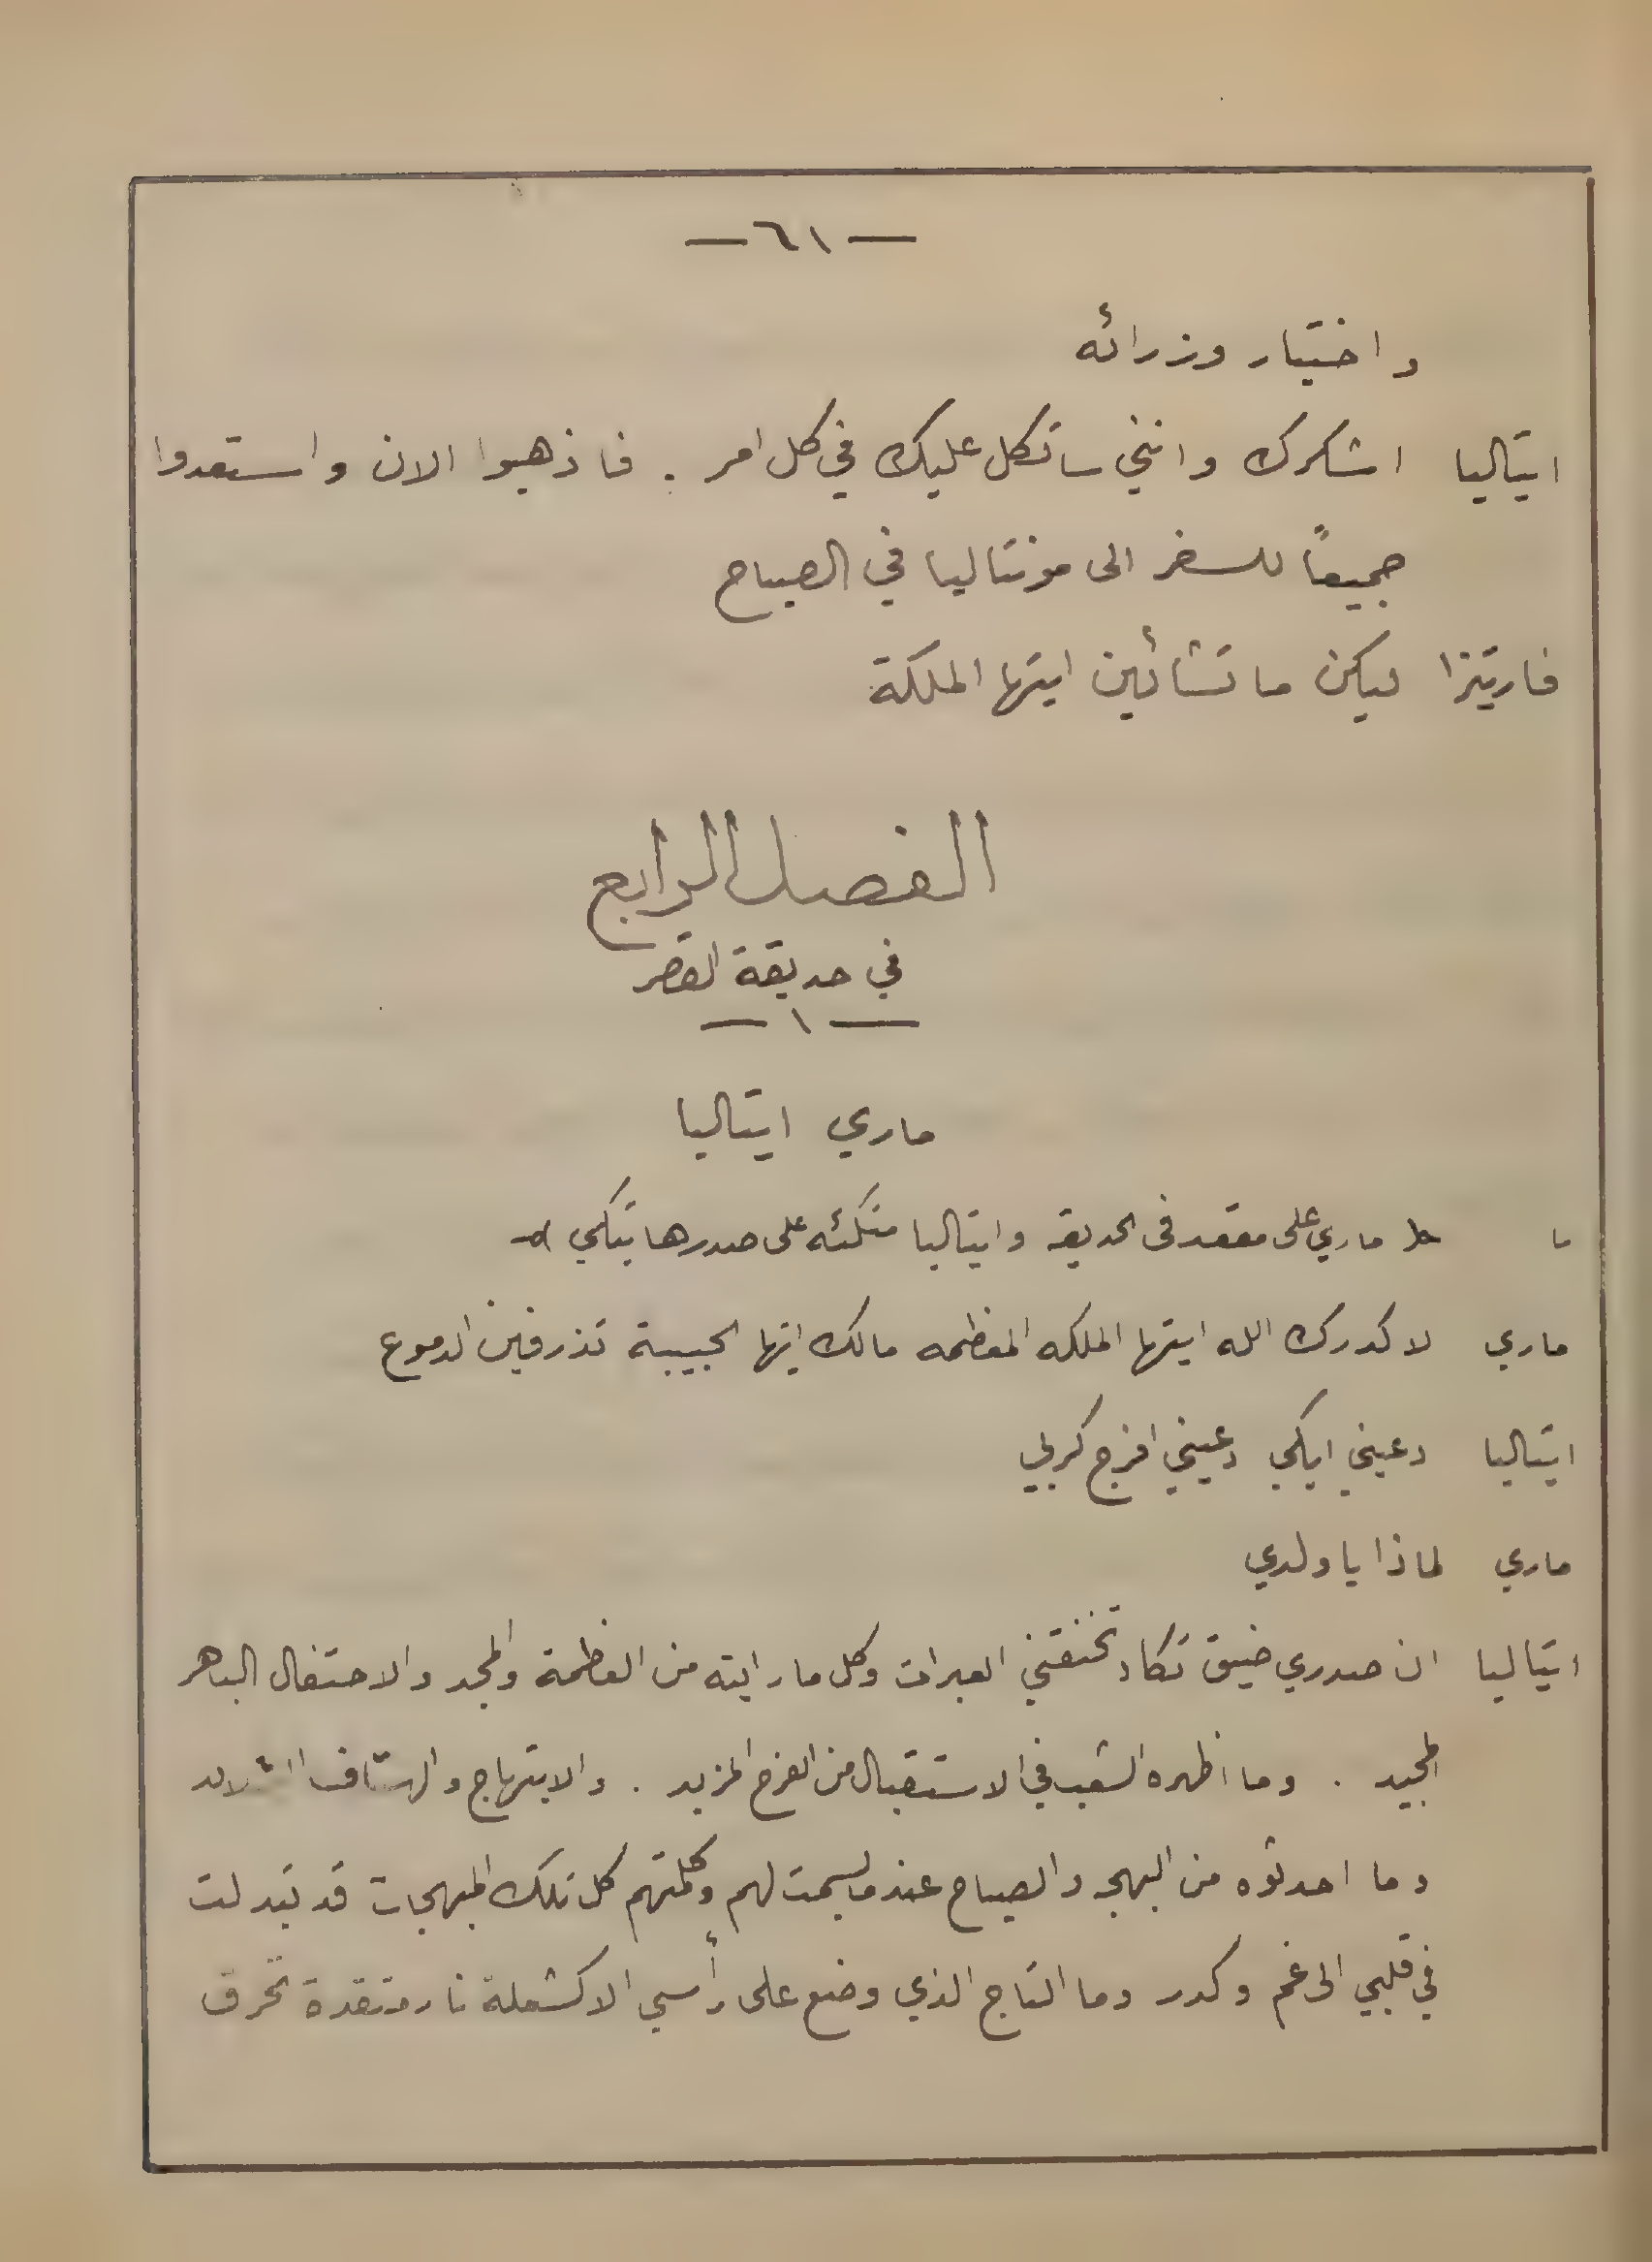 — ٦١ —
واختيار وزرائه
ايتاليا اشكرك وانني ساتكل عليك في كل امر . فاذهبوا الان واستعدوا
جميعاً للسفر الى مونتاليا في الصباح
فاريتزا ليكن ما تشائين ايتها الملكة
الفصل الرابع
في حديقة القصر
— ١ —
ماري ايتاليا
ما ماري على مقعد في الحديقه وايتاليا متكئه على صدرها تبكي
ماري لا كدرك الله ايتها الملكه المعظمه مالك ايتها الحبيبة تذرفين الدموع
ايتاليا دعيني ابكي دعيني افرج كربي
ماري لماذا يا ولدي
ايتاليا ان صدري ضيق تكاد تخنقني العبرات وكل ما رايته من العظمة والمجد والاحتفال الباهر
المجيد . وما اظهره الشعب في الاستقبال من الفرح المزيد . والابتهاج والهتاف
وما احدثوه من البهجه والصياح عندما بسمت لهم وكلمتهم كل تلك المبهجات قد تبدلت
في قلبي الى غم وكدر وما التاج الذي وضع على رأسي الا كشعلة نار متقدة تحرق